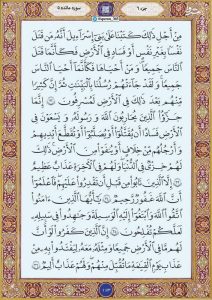 جزء ٦
سوره مائده ٥
مِنْ أَجْلِ ذَٰلِكَ كَتَبْنَا عَلَىٰ بَنِىٓ إِسْرَٰٓءِيلَ أَنَّهُۥ مَن قَتَلَ
نَفْسًۢا بِغَيْرِ نَفْسٍ أَوْ فَسَادٍ فِى ٱلْأَرْضِ فَكَأَنَّمَا قَتَلَ
ٱلنَّاسَ جَمِيعًا وَمَنْ أَحْيَاهَا فَكَأَنَّمَآ أَحْيَا ٱلنَّاسَ
جَمِيعًا وَلَقَدْ جَآءَتْهُمْ رُسُلُنَا بِٱلْبَيِّنَٰتِ ثُمَّ إِنَّ كَثِيرًا
مِّنْهُم بَعْدَ ذَٰلِكَ فِى ٱلْأَرْضِ لَمُسْرِفُونَ ٣٢ إِنَّمَا
جَزَٰٓؤُا۟ ٱلَّذِينَ يُحَارِبُونَ ٱللَّهَ وَرَسُولَهُۥ وَيَسْعَوْنَ فِى
ٱلْأَرْضِ فَسَادًا أَن يُقَتَّلُوٓا۟ أَوْ يُصَلَّبُوٓا۟ أَوْ تُقَطَّعَ أَيْدِيهِمْ
وَأَرْجُلُهُم مِّنْ خِلَٰفٍ أَوْ يُنفَوْا۟ مِنَ ٱلْأَرْضِ ذَٰلِكَ
لَهُمْ خِزْىٌ فِى ٱلدُّنْيَا وَلَهُمْ فِى ٱلْءَاخِرَةِ عَذَابٌ عَظِيمٌ
٣٣ إِلَّا ٱلَّذِينَ تَابُوا۟ مِن قَبْلِ أَن تَقْدِرُوا۟ عَلَيْهِمْ فَٱعْلَمُوٓا۟
أَنَّ ٱللَّهَ غَفُورٌ رَّحِيمٌ ٣٤ يَٰٓأَيُّهَا ٱلَّذِينَ ءَامَنُوا۟
ٱتَّقُوا۟ ٱللَّهَ وَٱبْتَغُوٓا۟ إِلَيْهِ ٱلْوَسِيلَةَ وَجَٰهِدُوا۟ فِى سَبِيلِهِۦ
لَعَلَّكُمْ تُفْلِحُونَ ٣٥ إِنَّ ٱلَّذِينَ كَفَرُوا۟ لَوْ أَنَّ
لَهُم مَّا فِى ٱلْأَرْضِ جَمِيعًا وَمِثْلَهُۥ مَعَهُۥ لِيَفْتَدُوا۟ بِهِۦ مِنْ
عَذَابِ يَوْمِ ٱلْقِيَٰمَةِ مَا تُقُبِّلَ مِنْهُمْ وَلَهُمْ عَذَابٌ أَلِيمٌ ٣٦
١١٣